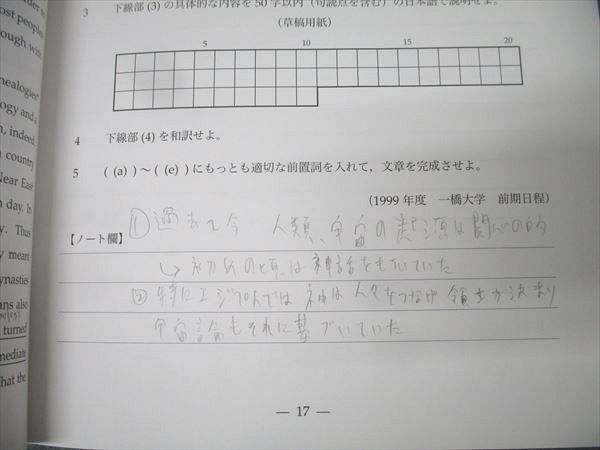 der to
ost people
ough with
nealogies"
ogy and a
n, indeed,
n country
Near East
n day. In
y. Thus
y meant
ynasties
ans also
turned
mediate
hat the
3 下線部 (3) の具体的な内容を 50 字以内（句読点を含む）の日本語で説明せよ。
（草稿用紙）
5 10 15 20
4 下線部 (4) を和訳せよ。
5 ( (a) ) ～ ( (e) ) にもっとも適切な前置詞を入れて，文章を完成させよ。
（1999 年度 一橋大学 前期日程）
① 過去も今 人類、宇宙の起源は関心の的
【ノート欄】
↳ 初めの頃は神話をもいていた
② 特にエジプトでは 神は人々をつなげ 領土が決まり
宇宙論もそれに基づいていた
— 17 —